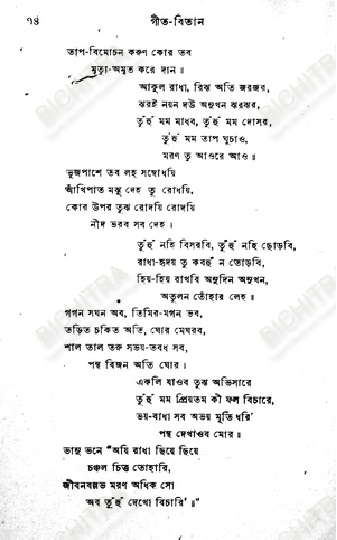 ৭৪ গীত-বিতান
তাপ-বিমোচন করুণ কোর তব
মৃত্যু-অমৃত করে দান॥
আকুল রাধা, রিঝ অতি জরজর,
ঝরই নয়ন দউ অনুখন ঝরঝর,
তুঁহুঁ মম মাধব, তুঁহুঁ মম দোসর,
তুঁহুঁ মম তাপ ঘুচাও,
মরণ তু আওরে আও॥
ভুজপাশে তব লহ সম্বোধয়ি
আঁখিপাত মঝু দেহ তু রোধয়ি,
কোর উপর তুঝ রোদয়ি রোদয়ি
নীদ ভরব সব দেহ।
তুঁহুঁ নহি বিসরবি, তুঁহুঁ নহি ছোড়বি,
রাধা-হৃদয় তু কবহুঁ ন তোড়বি,
হিয়-হিয় রাখবি অনুদিন অনুখন,
অতুলন তোঁহার লেহ॥
গগন সঘন অব, তিমির-মগন ভব,
তড়িত চকিত অতি, ঘোর মেঘরব,
শাল তাল তরু সভয়-তবধ সব,
পন্থ বিজন অতি ঘোর।
একলি যাওব তুঝ অভিসারে
তুঁহুঁ মম প্রিয়তম কী ফল বিচারে,
ভয়-বাধা সব অভয় মুর্তি ধরি'
পন্থ দেখাওব মোর॥
ভানু ভনে "অয়ি রাধা ছিয়ে ছিয়ে
চঞ্চল চিত্ত তোহারি,
জীবনবল্লভ মরণ অধিক সো
অব তুঁহুঁ দেখো বিচারি'॥"
BICHITRA